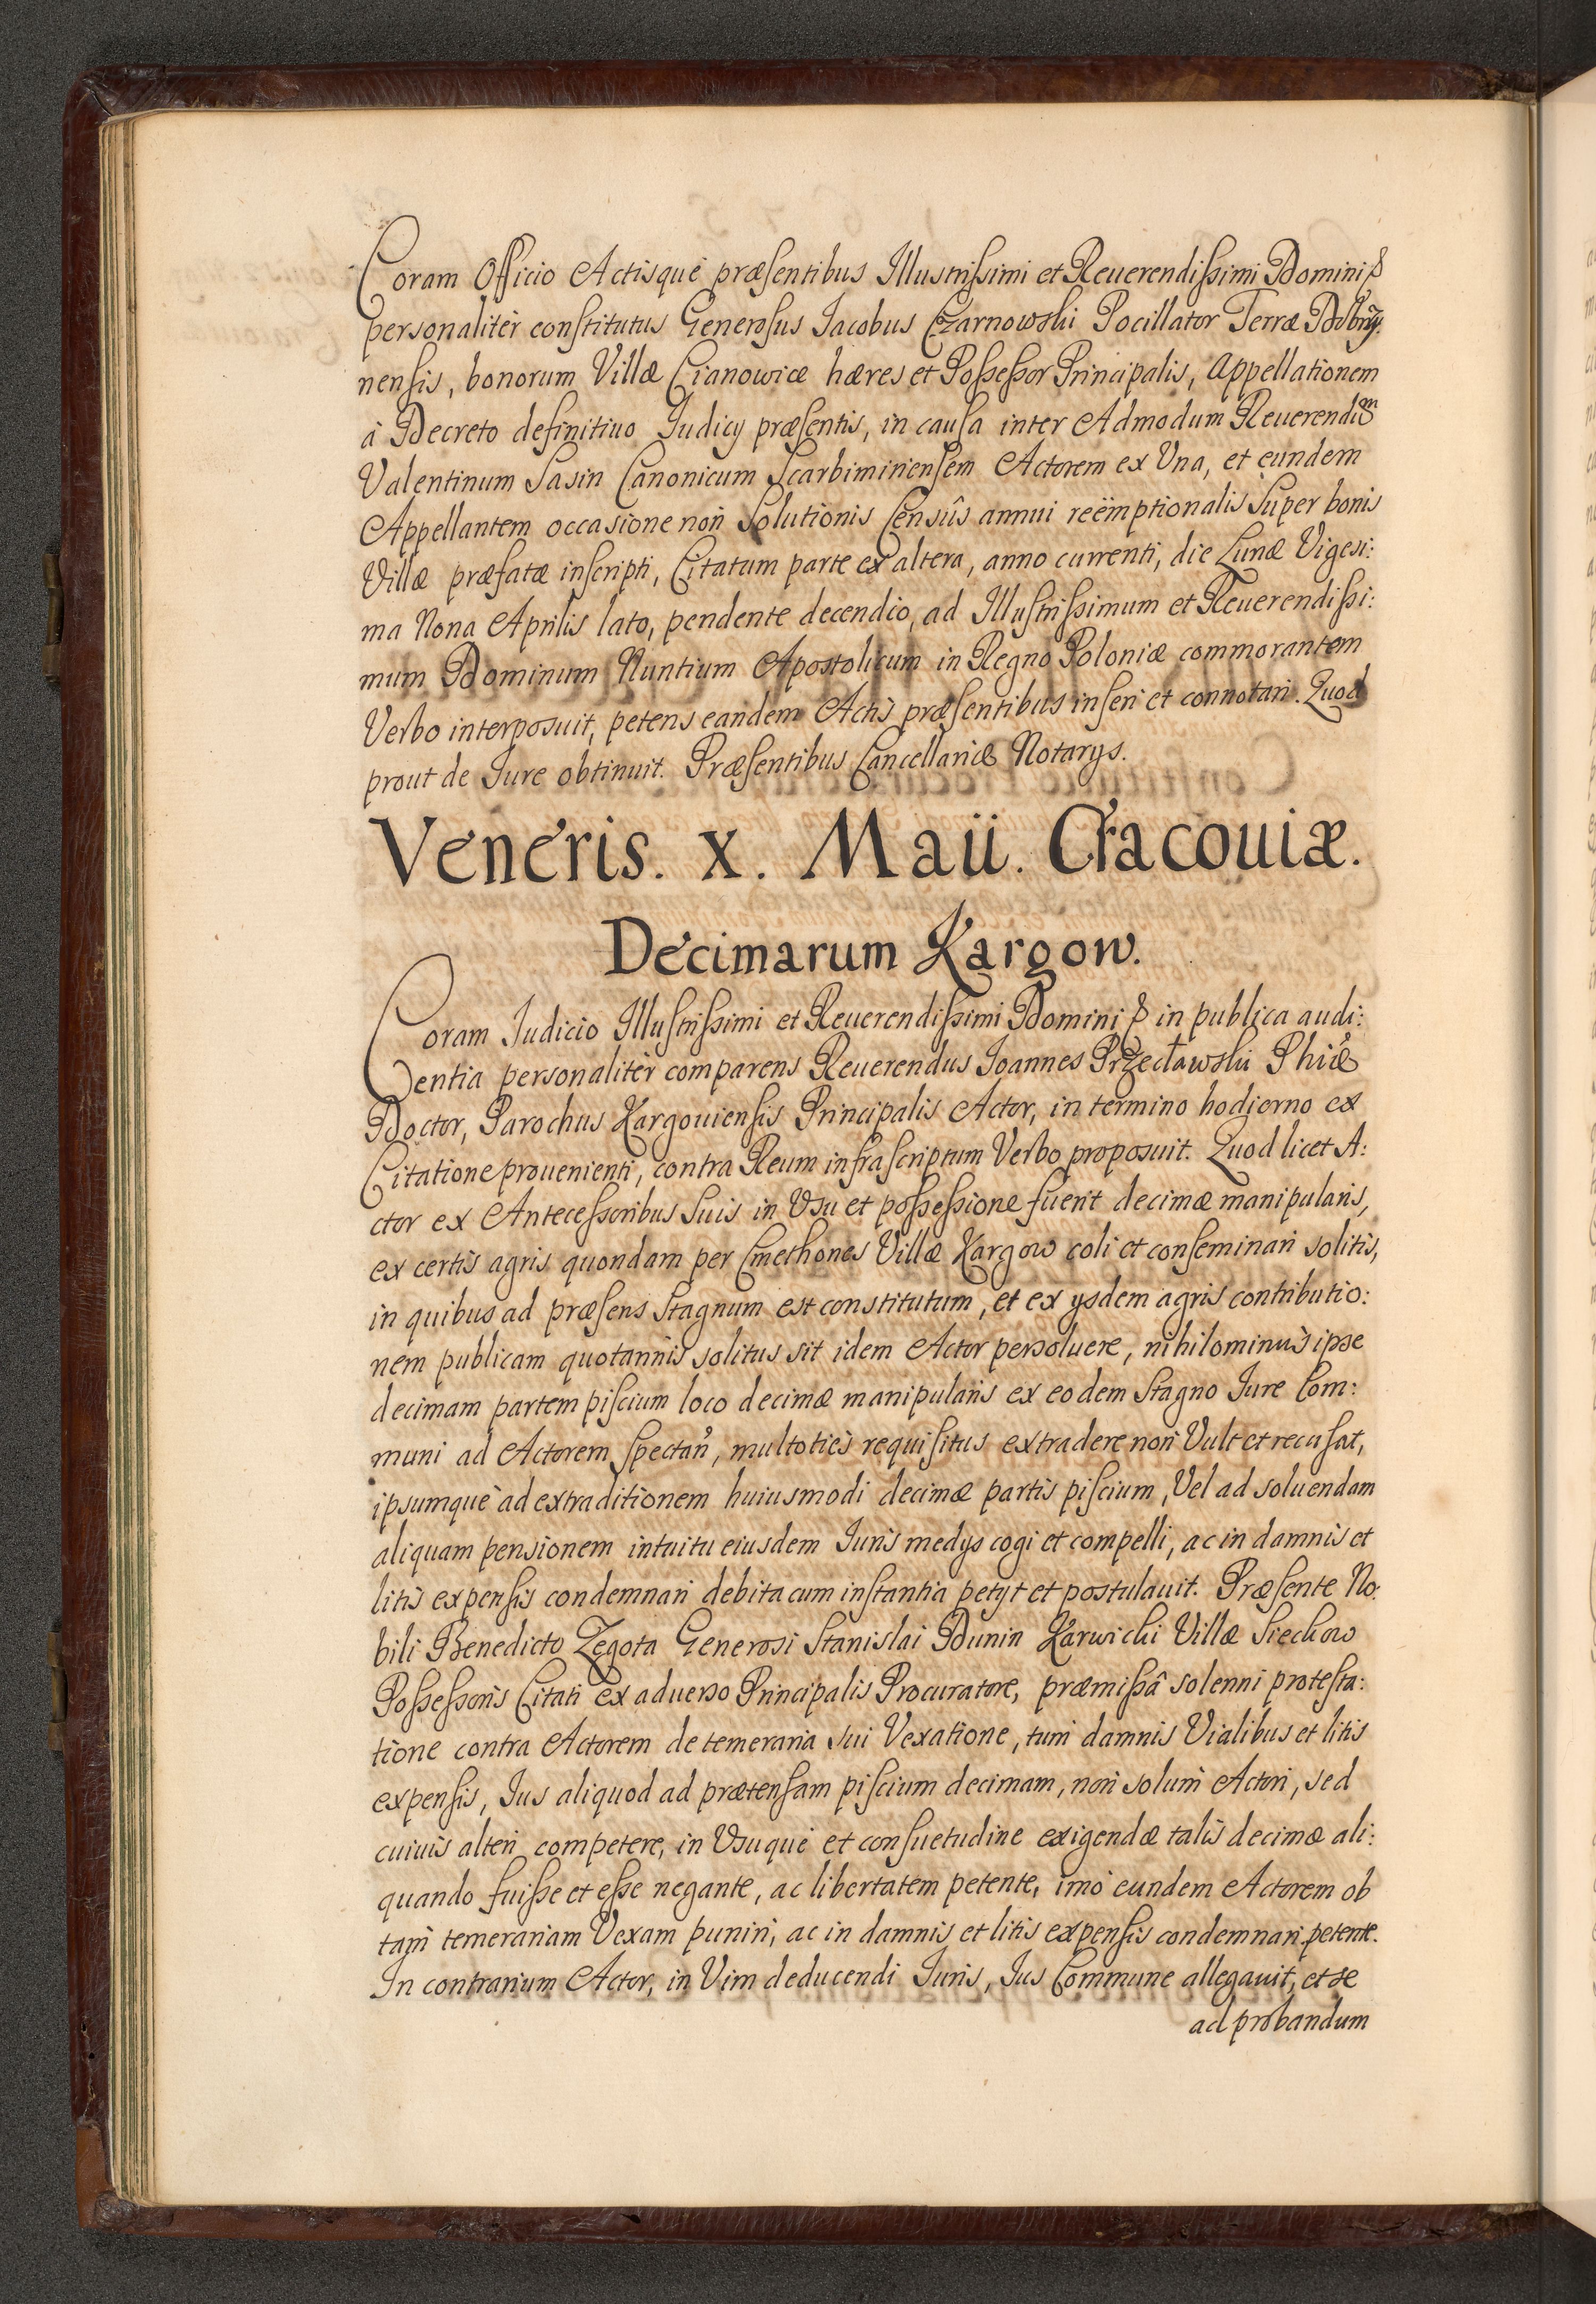 Coram Officio Actisque præsentibus Illustrissimi et Reuerendissimi Domini &
personaliter constitutus Generosus Iacobus Czarnowski Pocillator Terræ Dobrzy:
nensis, bonorum Villæ Cianowice hæres et Possessor Principalis, Appellationem
à Decreto definitiuo Iudicij præsentis, in causa inter Admodum Reuerendum
Valentinum Sasin Canonicum Scarbimiriensem Actorem ex Vna, et eundem
Appellantem occasione non Solutionis Censûs annui reëmptionalis Super bonis
Villæ præfatæ inscripti, Citatum parte ex altera, anno currenti, die Lunæ Vigesi:
ma Nona Aprilis lato, pendente decendio, ad Illustrissimum et Reuerendissi:
mum Dominum Nuntium Apostolicum in Regno Poloniæ commorantem
Verbo interposuit, petens eandem Actis præsentibus inseri et connotari. Quod
prout de Iure obtinuit. Præsentibus Cancellariæ Notarijs.
Veneris. X. Maii. Cracouiæ.
Decimarum Kargow.
Coram Iudicio Illustrissimi et Reuerendissimi Domini & in publica audi:
entia personaliter comparens Reuerendus Ioannes Przecławski Phiæ
Doctor, Parochus Kargouiensis Principalis Actor, in termino hodierno ex
Citatione prouenienti, contra Reum infrascriptum Verbo proposuit. Quod licet A:
ctor ex Antecessoribus Suis in Vsu et possessione fuerit decimæ manipularis,
ex certis agris quondam per Cmethones Villæ Kargow coli et conseminari solitis,
in quibus ad præsens Stagnum est constitutum, et ex ijsdem agris contributio:
nem publicam quotannis solitus sit idem Actor persoluere, nihilominus ipse
decimam partem piscium loco decimæ manipularis ex eodem Stagno Iure Com:
muni ad Actorem spectan̄, multoties requisitus extradere non Vult et recusat,
ipsumque ad extraditionem huiusmodi decimæ partis piscium, Vel ad soluendam
aliquam pensionem intuitu eiusdem Iuris medijs cogi et compelli, ac in damnis et
litis expensis condemnari debita cum instantia petijt et postulauit. Præsente No:
bili Benedicto Zegota Generosi Stanislai Dunin Karwicki Villæ Sieckow
Possessoris Citati ex aduerso Principalis Procuratore, præmissâ solenni protesta:
tione contra Actorem de temeraria sui Vexatione, tum damnis Vialibus et litis
expensis, Ius aliquod ad prætensam piscium decimam, non solum Actori, sed
cuiuis alteri competere, in Vsuque et consuetudine exigendæ talis decimæ ali:
quando fuisse et esse negante, ac libertatem petente, imò eundem Actorem ob
tam temerariam Vexam puniri, ac in damnis et litis expensis condemnari petente.
In contrarium Actor, in Vim deducendi Iuris, Ius Commune allegauit, et se
ad probandum